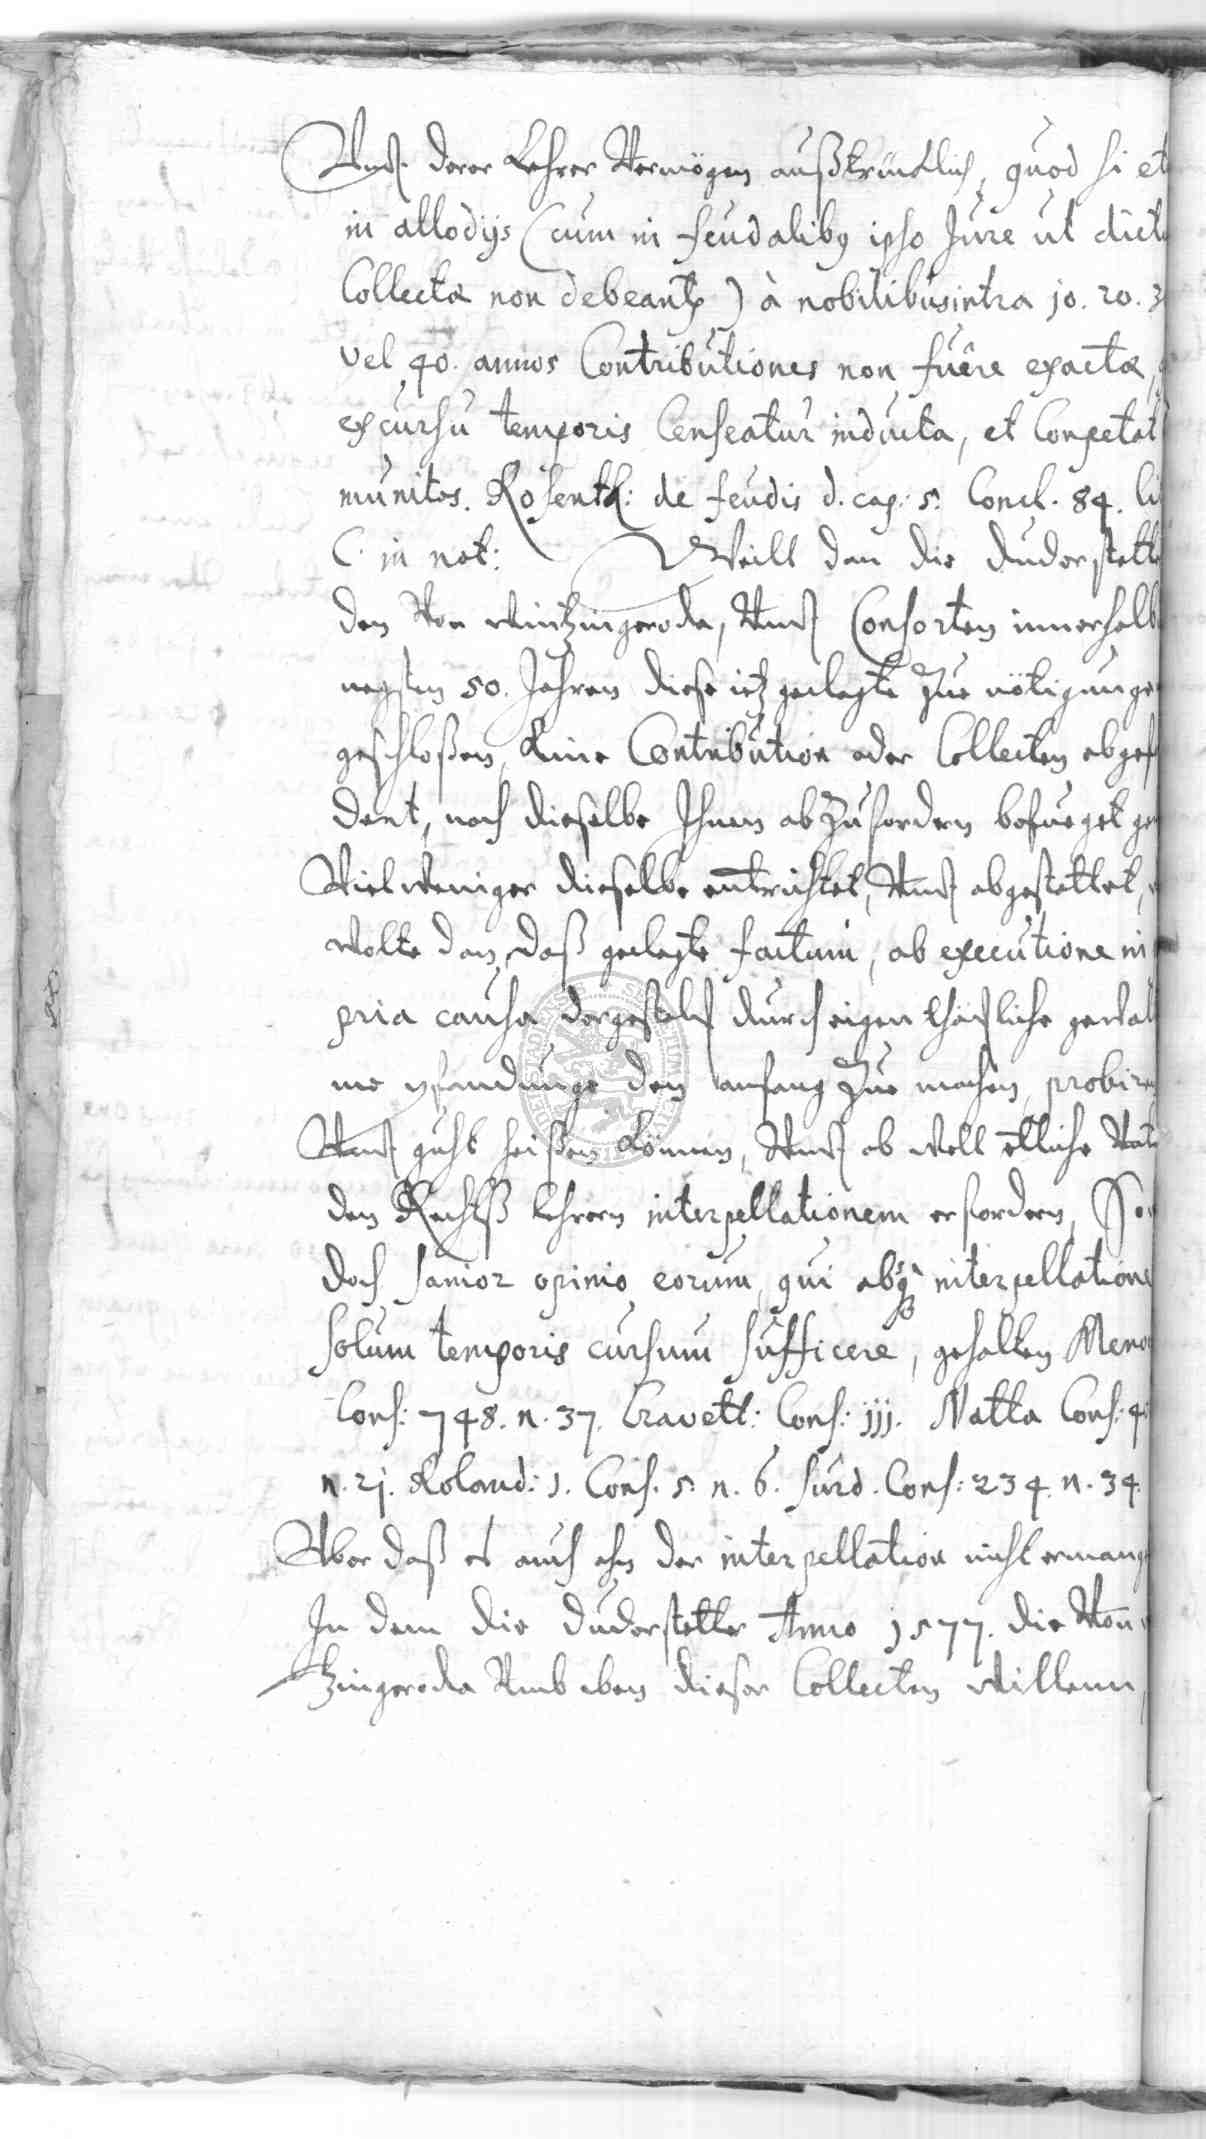 Vnd derer Lehrer Vermögen außtrücklich, quod si et
in allodijs (cum in feudalibq ipso Jure ut dict
Collectæ non debeantr) à nobilibus intra 10. 20. 3
vel 40. annos Contributiones non fuêre exactæ,
ex cursu temporis Censeatur inducta, et Conpetat
munitas. Rosenth: de feudis d. cap: 5. Concl. 84. li
C. in not: Weill dan die Duderstett
den Von Wintzingeroda, Vnd Consorten innerhalb
negsten 50. Jahren diese ietz geclagte zue nötigunge
geschloßen, Keine Contribution oder Collecten abgef
dert, noch dieselbe Ihnen abzufordern befueget ge
Viel weniger dieselbe entrichtet, Vnd abgestattet,
wolte dan, daß geclagte factum, ab executione in
pria causa dergestalt durch eigenthätliche gewal
me pfandunge den anfang zue machen, probire
Vnd guht heißen können, Vnd ob woll etliche
den Rechtß Lehrern interpellationem erfordern,
doch sanior opinio eorum, qui absq interpellatione
solum temporis cursum sufficere, gehalten Meno
Cons: 748. n. 37. Cravett: Cons: 111. Natta Cons: 4
n. 21. Roland: 1. Cons. 5. n. 6. Surd. Cons: 234. n. 34.
Aber daß es auch ahn der interpellation nicht ermang
In dem die Duderstetter Anno 1577. die Von
tzingeroda Vmb eben dieser Collecten willenn,